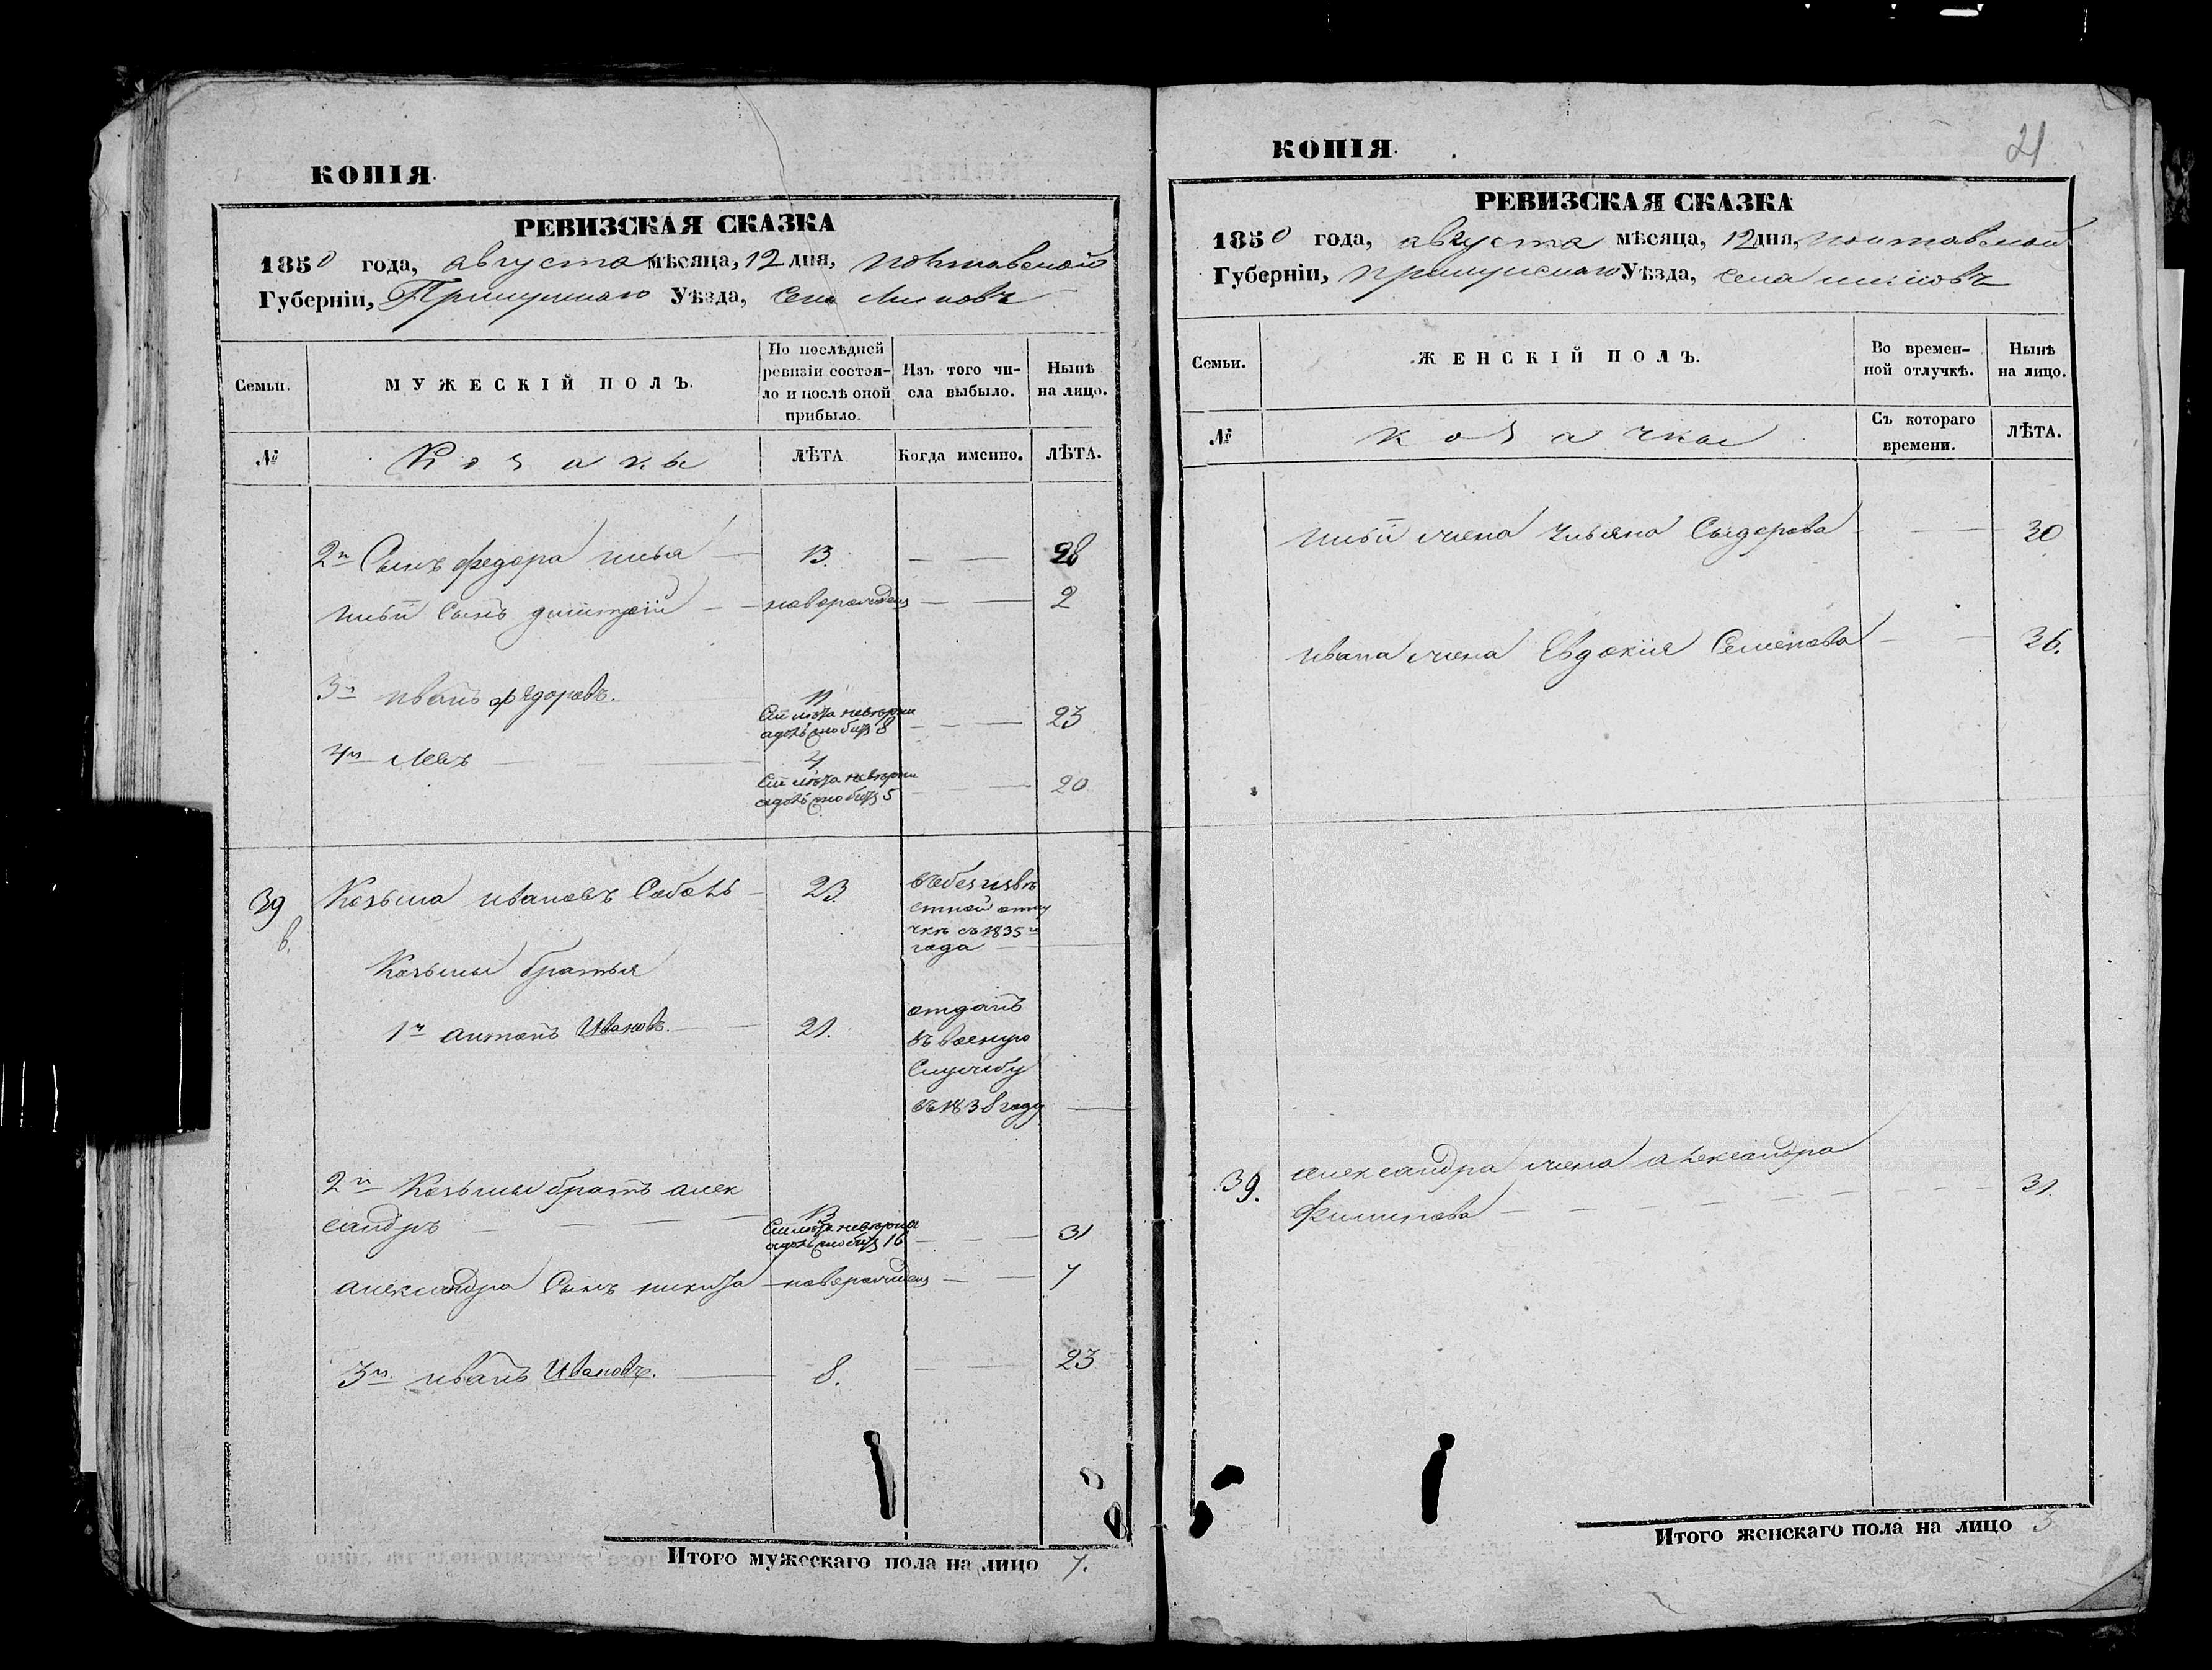 КОПІЯ.
РЕВИЗСКАЯ СКАЗКА
1850 года, августа мѣсяца, 12 дня, полтавской
Губерніи, Прилуцкаго Уѣзда, села
Семьи.
МУЖЕСКІЙ ПОЛЪ.
По послѣдней
ревизіи состоя-
ло и послѣ оной
прибыло.
Изъ того чи-
сла выбыло.
Нынѣ
на лицо.
№
Козаки
ЛѢТА
Когда именно.
ЛѢТА.
2й Сынъ федора илья 13. 28
ильи Сынъ дмитрій новорожденъ 2
3й иванъ федоровъ. 11
Сіи лѣта невѣрны
а должно быть 8 23
4й Левъ 4
Сіи лѣта невѣрны
а должно быть 5 20
39 Козьма ивановъ Соболь 23 въ безизвѣ
стной отлу
чкѣ съ 1835го
года
Козьмы братья
1й антонъ Ивановъ. 21. отданъ
въ военую
Службу
въ 1838 году
2й Козьмы братъ алек
сандръ 13
Сіи лѣта невѣрны
а должно быть 16 31
александра Сынъ никита новорожденъ 7
3й иванъ Ивановъ. 8. 23
Итого мужескаго пола на лицо 7.
КОПІЯ.
21
РЕВИЗСКАЯ СКАЗКА
1850 года, августа мѣсяца, 12 дня, полтавской
Губерніи, прилуцкаго Уѣзда, села
Семьи.
ЖЕНСКІЙ ПОЛЪ.
Во времен-
ной отлучкѣ.
Нынѣ
на лицо.
№
козачки
Съ котораго
времени.
ЛѢТА.
ильи жена Ульяна Сыдорова 30
ивана жена Евдокія Семенова 26.
39. александра жена александра
Филипова 31.
Итого женскаго пола на лицо 3